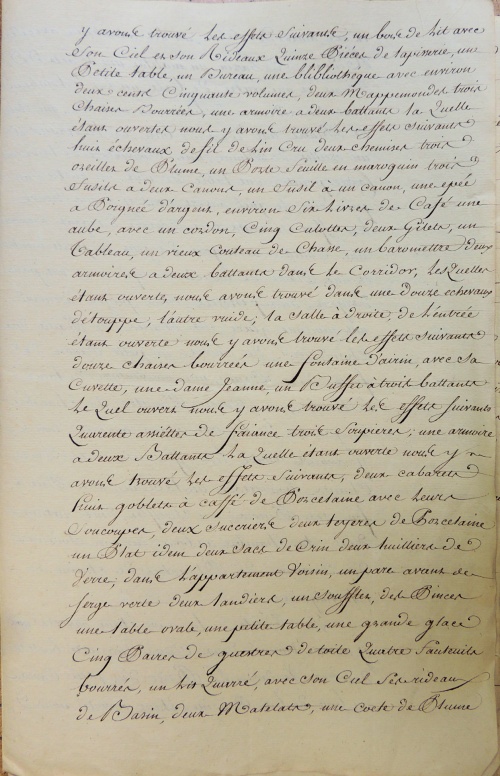 y avons trouvé les effets suivants, un bois de lit avec
son Ciel et son Rideaux Quinze Pièces de tapisserie, une
Petite table, un Bureau, une blibliothèque avec environ
deux cents Cinquante volumes, deux Mappemondes trois
chaises Bourrées, une armoire a deux battants la Quelle
étant ouvertes nous y avons trouvé les effets suivants
huit échevaux de fil de Lin Cru deux chemins trois
oreilles de Plume, un Porte feuille en maroquin trois
fusils a deux Canons, un fusil à un Canon, une epée
a Poignée d'argent, environ Six Livres de Café une
aube, avec un cordon, Cinq Culottes, deux Gilets, un
Tableau, un vieux Couteau de Chasse, un baromettre deux
armoires a deux battants dans le Corridor, lesquelles
étant ouvertes, nous avons trouvé dans une Douze echevaux
d'étouppe, l'autre vuide; la salle à droite, de l'éntrée
étant ouverte nous y avons trouvé les effets suivants
douze chaises bourrées une fontaine d'airin, avec sa
Cuvette, une dame Jeanne, un Buffet à trois battants
le Quel ouvert nous y avons trouvé les effets suivants
Quarente assiéttes de faiance trois Soupieres; une armoire
a deux Battants la Quelle étant ouverte nous y
avons trouvé les effets suivants, deux cabarets
huit goblets à caffé de Porcelaine avec leurs
Soucoupes, deux sucrieré deux toyeres de Porcelaine
un Plat idem deux sacs de Crin deux huilliers de
Verre; dans l'appartement Voisin, un pare avant de
serge verte deux landiers, un soufflet, des Pinces
une table ovale, une petite table, une grande glace
Cinq Paires de guettres de toile Quatre fauteuils
bourrés, un lit Quarré, avec son Ciel ses rideaux
de Basin, deux Matelats, une coete de Plume